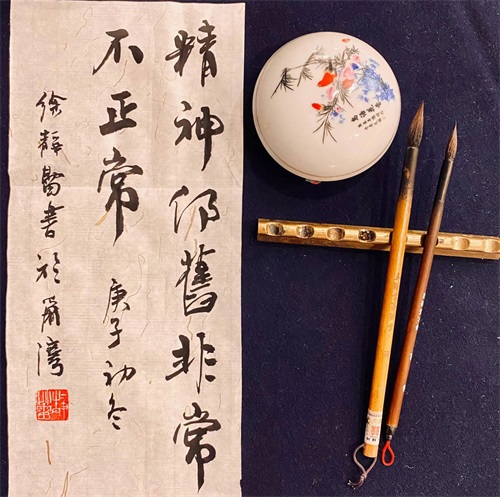 精神仍舊非常
不正常
庚子初冬
徐靜勗書於甬灣